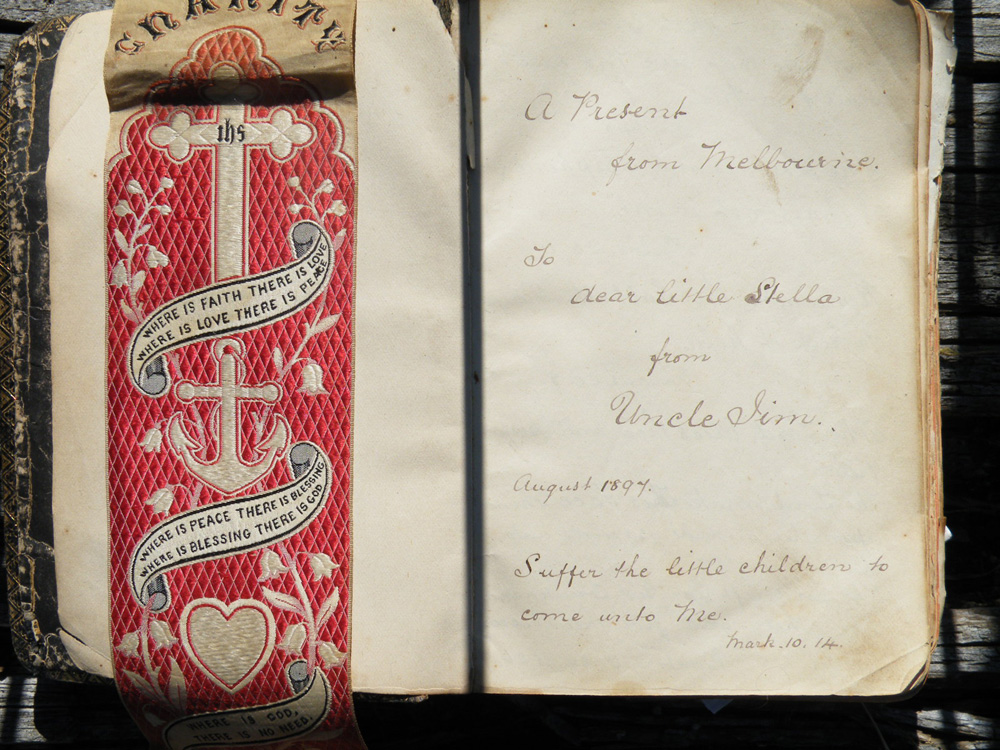 CHARITY
ihs
WHERE IS FAITH THERE IS LOVE
WHERE IS LOVE THERE IS PEACE
WHERE IS PEACE THERE IS BLESSING
WHERE IS BLESSING THERE IS GOD
WHERE IS GOD,
THERE IS NO NEED.
A Present
from Melbourne.
To
dear little Stella
from
Uncle Jim.
August 1897.
Suffer the little children to
come unto Me.
Mark. 10. 14.